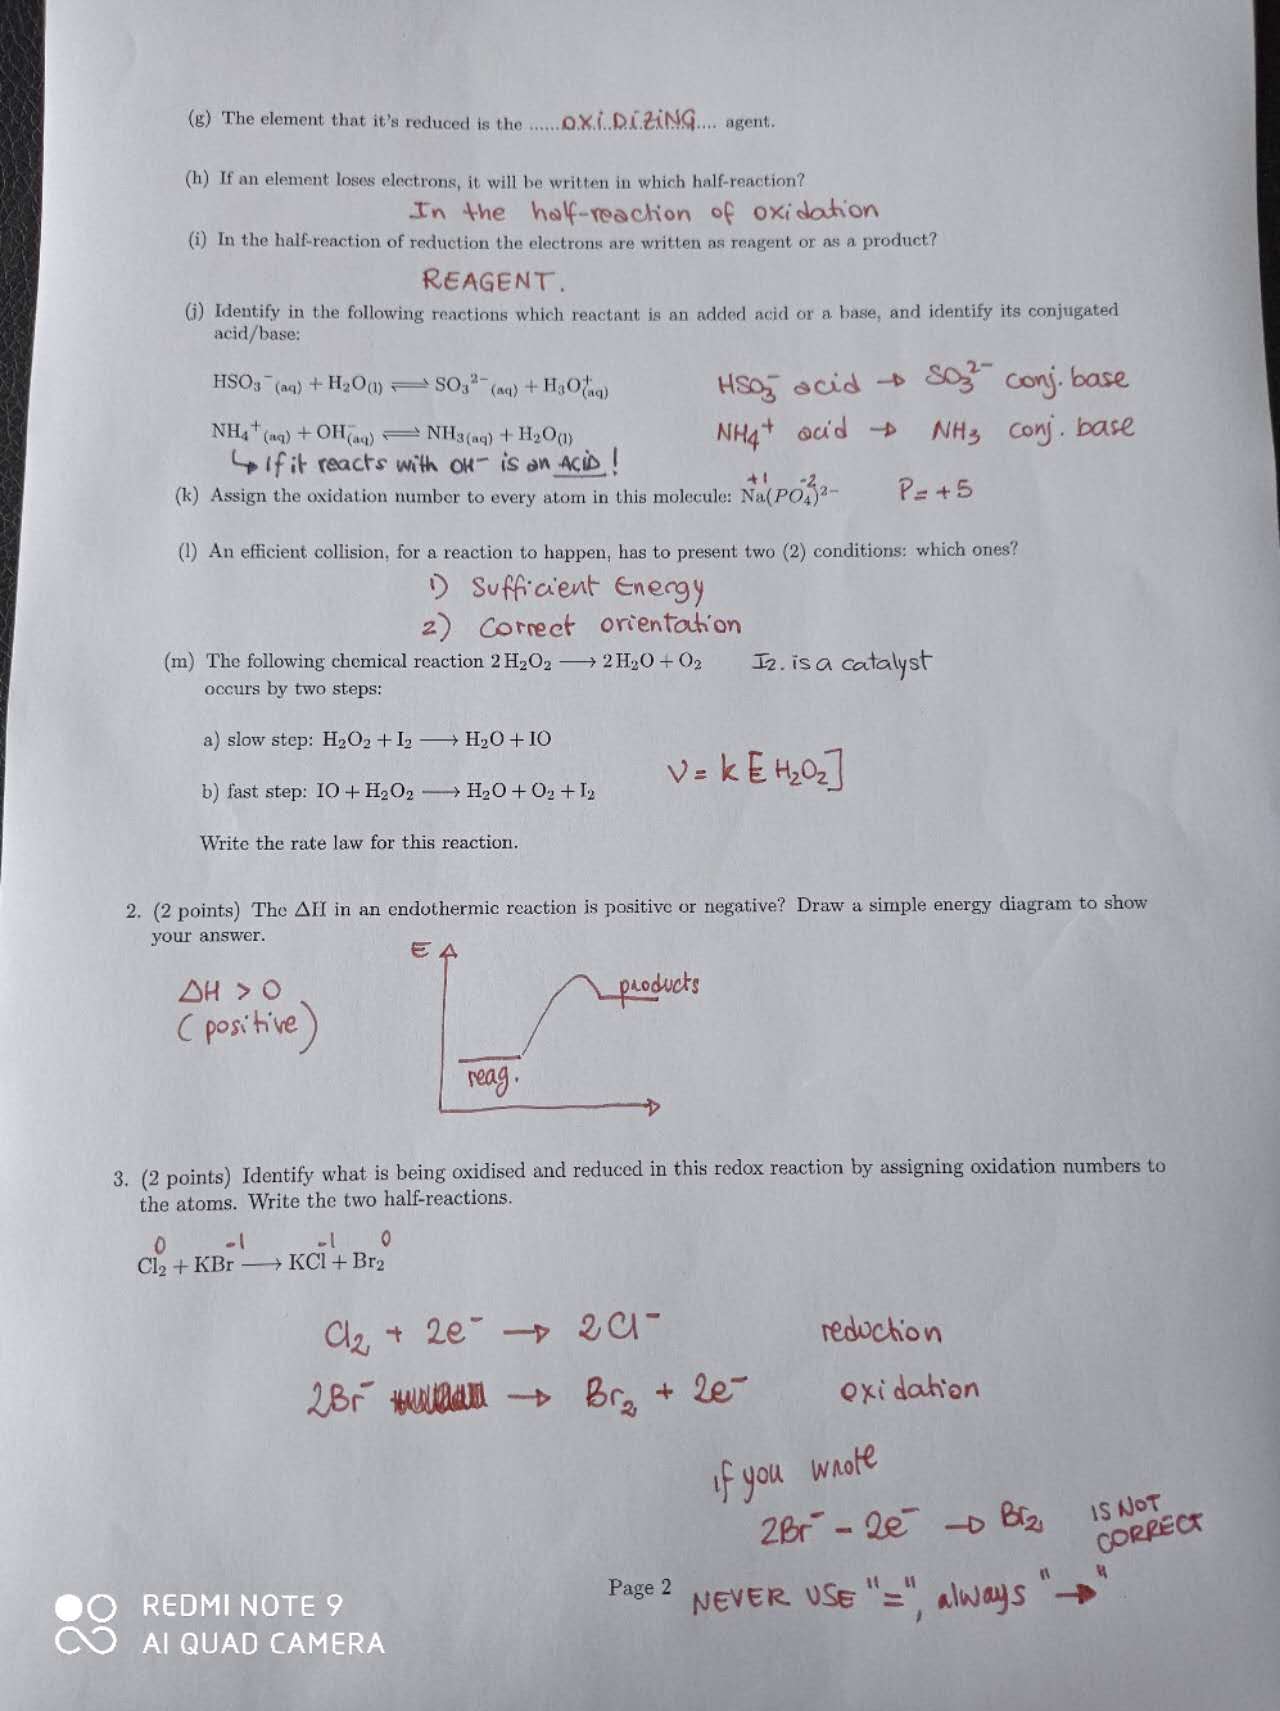 (g) The element that it's reduced is the ......OXIDIZING.... agent.
(h) If an element loses electrons, it will be written in which half-reaction?
In the half-reaction of oxidation
(i) In the half-reaction of reduction the electrons are written as reagent or as a product?
REAGENT.
(j) Identify in the following reactions which reactant is an added acid or a base, and identify its conjugated
acid/base:
HSO₃⁻(aq) + H₂O(l) ⇌ SO₃²⁻(aq) + H₃O⁺(aq) HSO₃⁻ acid → SO₃²⁻ conj. base
NH₄⁺(aq) + OH⁻(aq) ⇌ NH₃(aq) + H₂O(l) NH₄⁺ acid → NH₃ conj. base
↳ If it reacts with OH⁻ is an ACID!
+1 -2
(k) Assign the oxidation number to every atom in this molecule: Na(PO₄)²⁻ P= +5
(l) An efficient collision, for a reaction to happen, has to present two (2) conditions: which ones?
1) Sufficient Energy
2) Correct orientation
(m) The following chemical reaction 2 H₂O₂ → 2 H₂O + O₂ I₂. is a catalyst
occurs by two steps:
a) slow step: H₂O₂ + I₂ → H₂O + IO
V = k [H₂O₂]
b) fast step: IO + H₂O₂ → H₂O + O₂ + I₂
Write the rate law for this reaction.
2. (2 points) The ΔH in an endothermic reaction is positive or negative? Draw a simple energy diagram to show
your answer.
E
ΔH > 0
(positive)
products
reag.
3. (2 points) Identify what is being oxidised and reduced in this redox reaction by assigning oxidation numbers to
the atoms. Write the two half-reactions.
0 -1 -1 0
Cl₂ + KBr → KCl + Br₂
Cl₂ + 2e⁻ → 2Cl⁻ reduction
2Br⁻ → Br₂ + 2e⁻ oxidation
if you wrote
2Br⁻ - 2e⁻ → Br₂ IS NOT
CORRECT
Page 2 NEVER USE "=", always "→"
REDMI NOTE 9
AI QUAD CAMERA